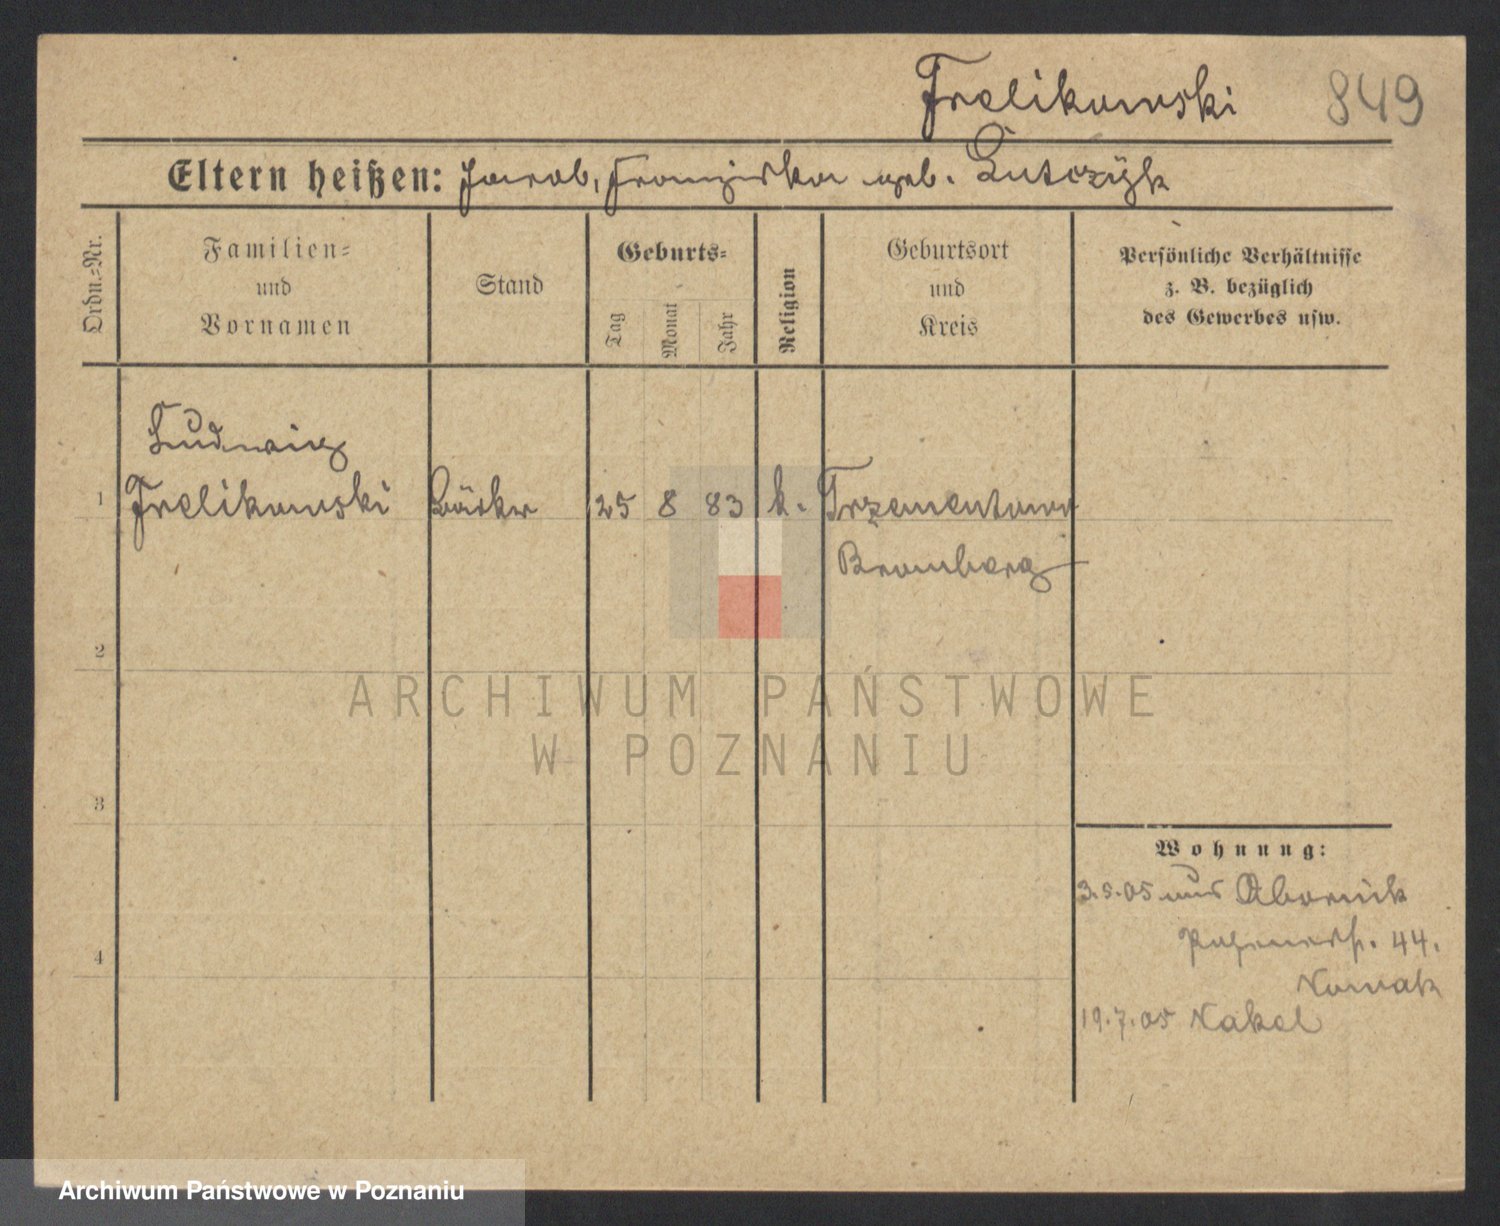 Frelikowski 849
Eltern heißen: Jacob, Franziska geb.
Ordn.-Nr.
Familien-
und
Vornamen
Stand
Geburts-
Tag
Monat
Jahr
Religion
Geburtsort
und
Kreis
Persönliche Verhältnisse
z. B. bezüglich
des Gewerbes usw.
Ludwig
1 Frelikowski Bäcker 25 8 83 k. Trzementowo
Bromberg
2
3
4
ARCHIWUM PAŃSTWOWE
W POZNANIU
Wohnung:
3.5.05 aus Obornik
44.
Nowak
19.7.05 Nakel
Archiwum Państwowe w Poznaniu